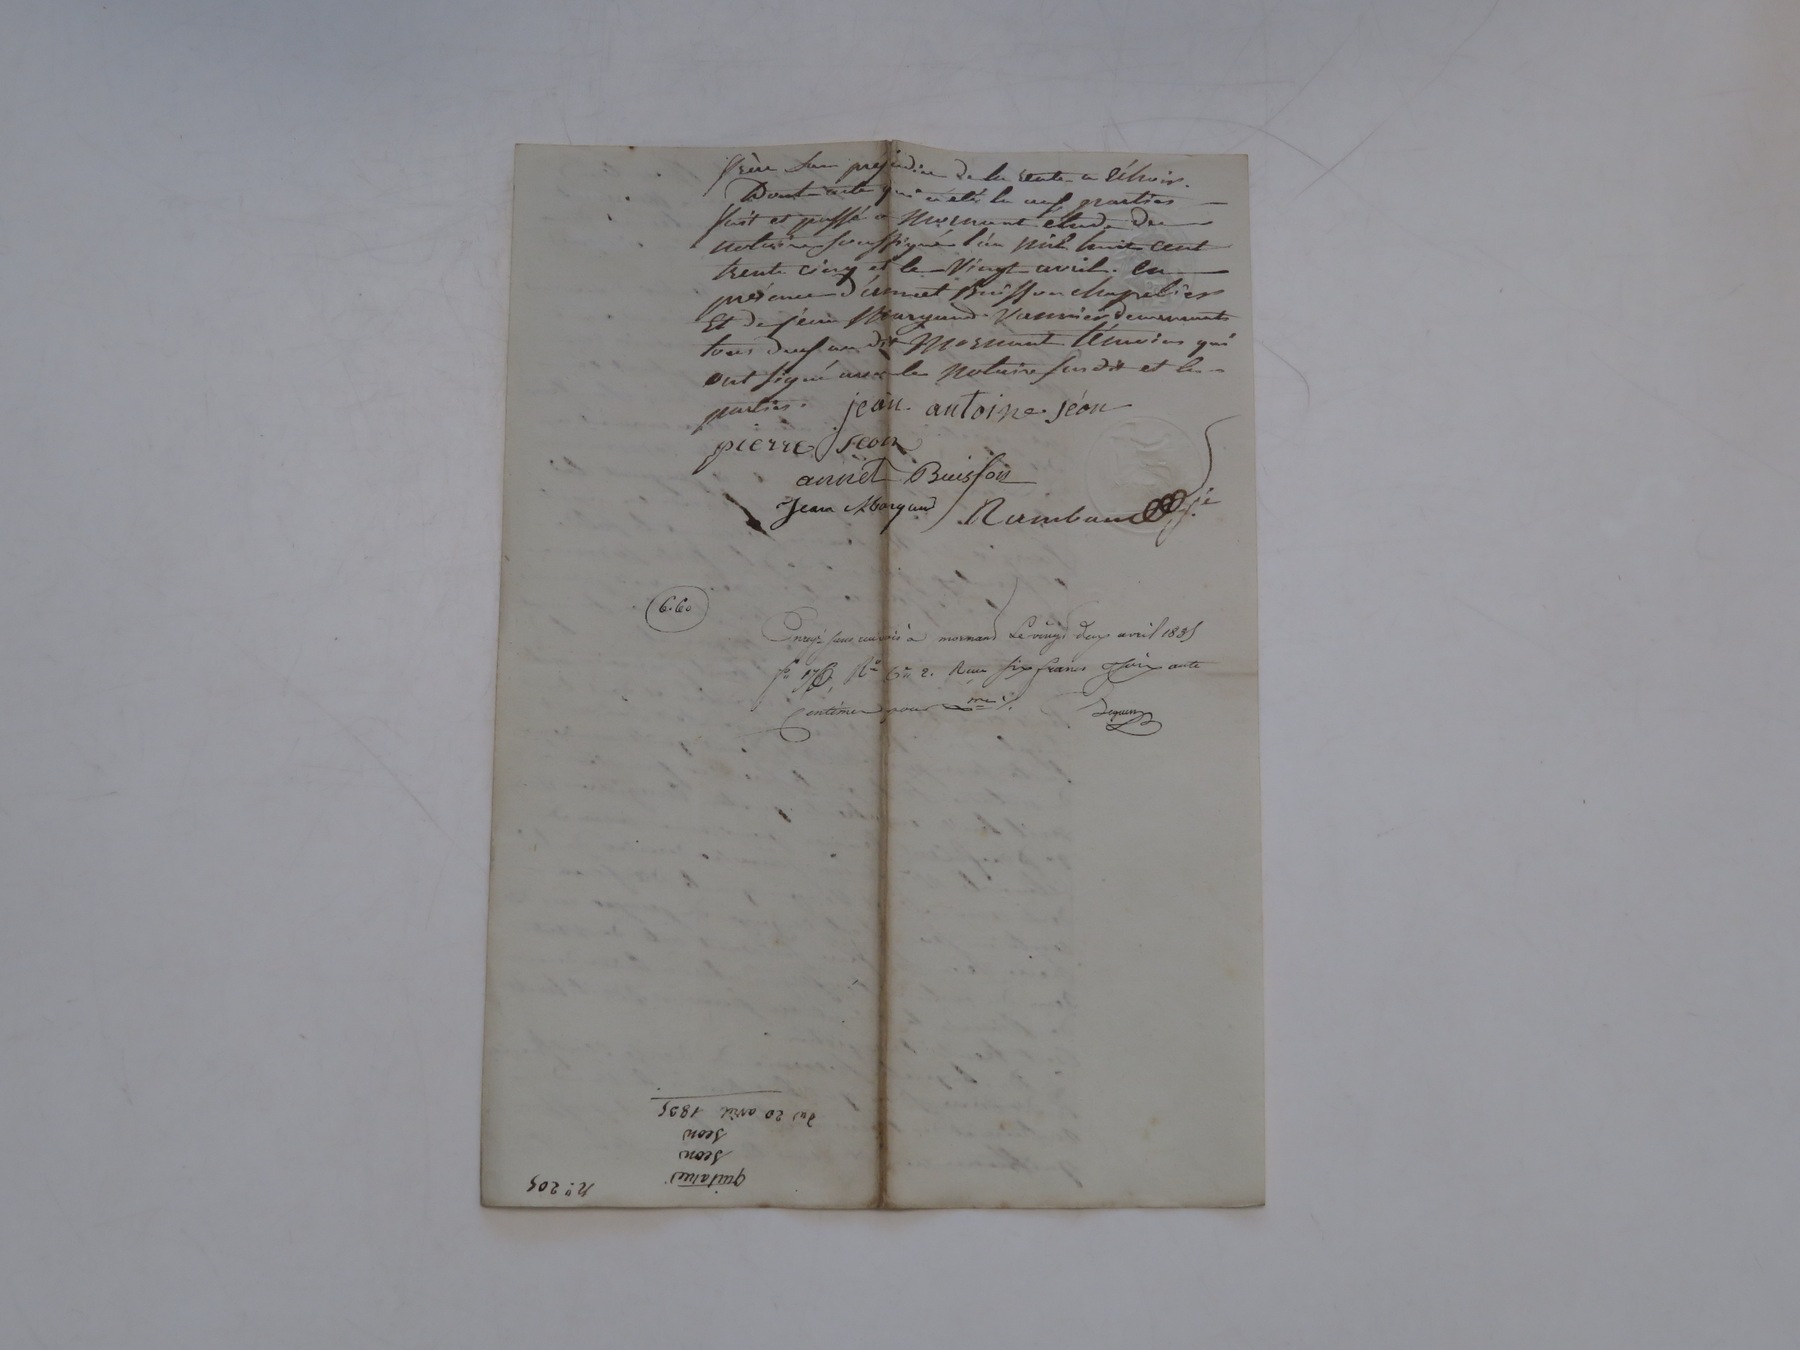 frère sans prejudice de la rente a échoir.
Dont acte qui a été lu aux parties
fait et passé a Mornant étude du
notaire soussigné l'an mil huit cent
trente cinq et le Vingt avril. en
présence d'annet Buisson chapelier
Et de jean Margand Vannier demeurants
tous deux au dit Mornant témoins qui
ont signé avec le notaire susdit et les
parties. jean antoine séon
pierre séon
annet Buisson
Jean Margand Rambaud
6.60
Enregé sans renvois à mornand Le vingt deux avril 1835
fo 176, Ro Co 2. Reçu six francs soixante
Centimes pour
du 20 avril 1835
seon
seon
quitance
no. 205